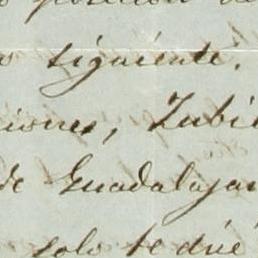 posicion de
siguiente.
iones, Zubi
de Guadalajar
solo te diré